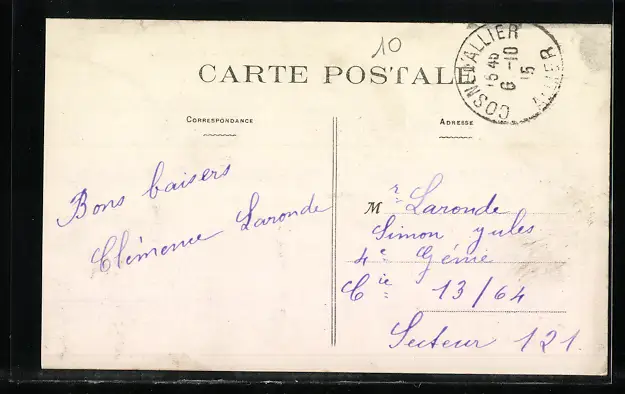 10
CARTE POSTALE
COSNE D'ALLIER
15 45
6 -10
15
ALLIER
CORRESPONDANCE
ADRESSE
Bons baisers
Clémence Laronde
Mr Laronde
Simon jules
4e Génie
Cie 13/64
Secteur 121